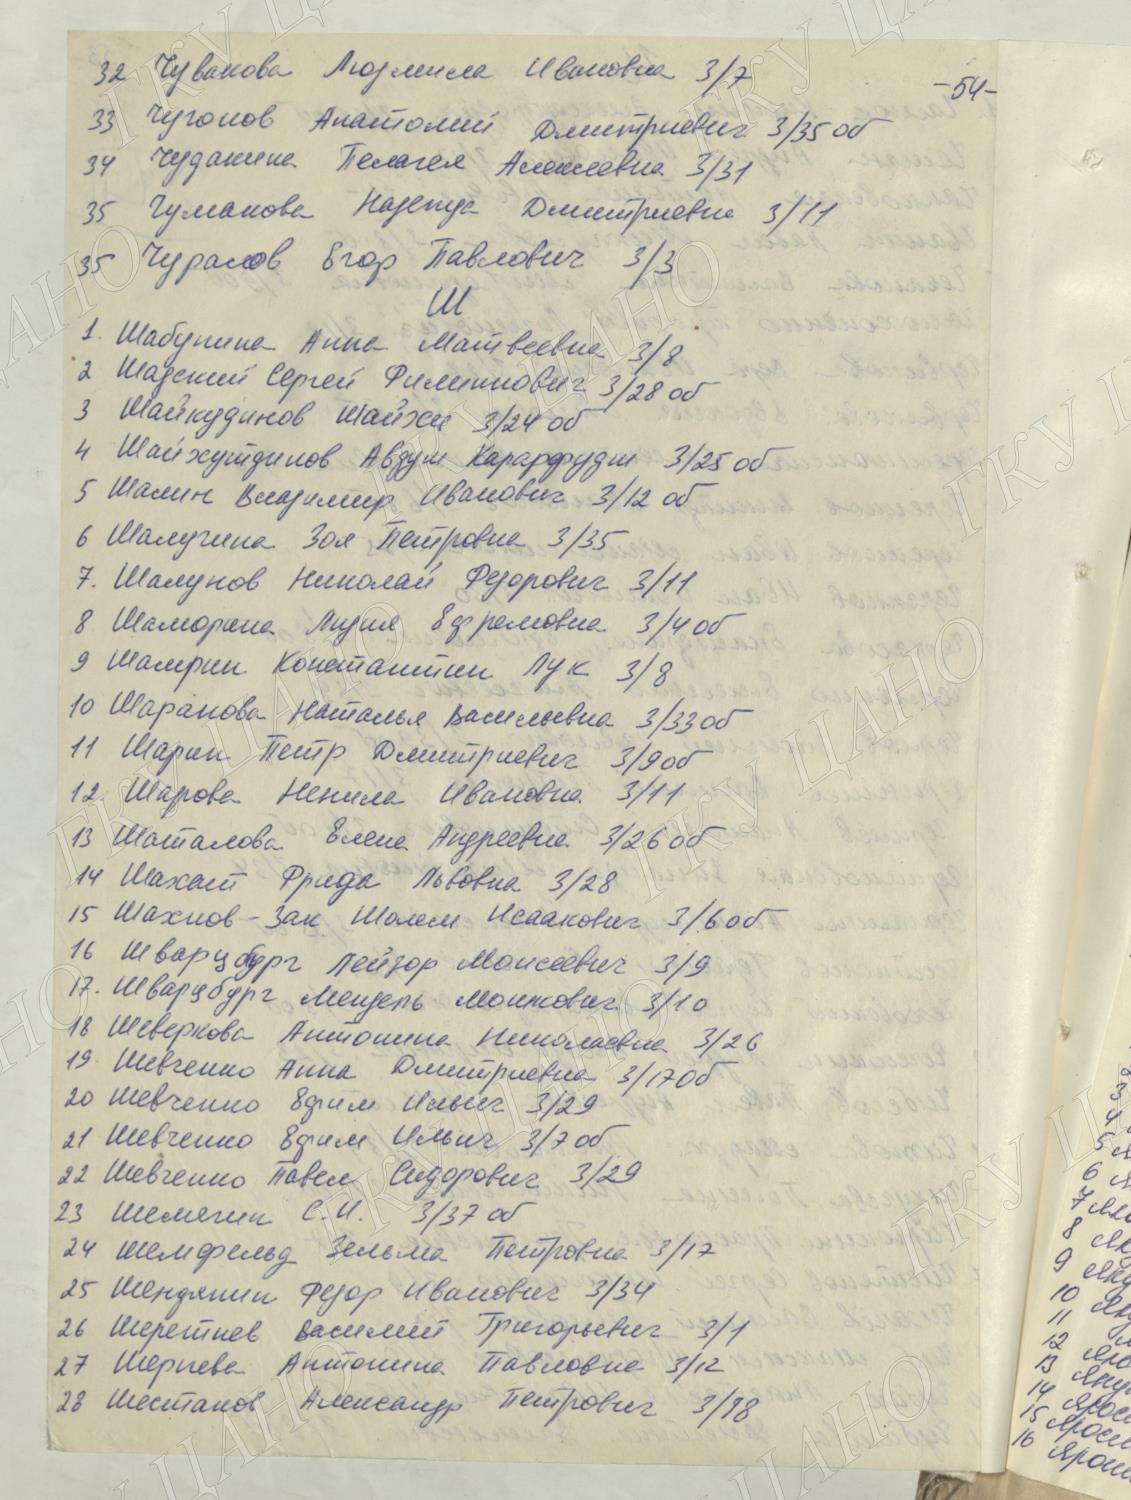 -54-
32 Чувакова Людмила Ивановна 3/7
33 Чугонов Анатолий Дмитриевич 3/35 об
34 Чудакина Пелагея Алексеевна 3/31
35 Чумакова Надежда Дмитриевна 3/11
35 Чураков Егор Павлович 3/3
Ш
1. Шабунина Анна Матвеевна 3/8
2 Шадский Сергей Филиппович 3/28 об
3 Шайкудинов Шайхи 3/24 об
4 Шайхутдинов Авдуш 3/25 об
5 Шалин Владимир Иванович 3/12 об
6 Шалугина Зоя Петровна 3/35
7. Шалунов Николай Федорович 3/11
8 Шаморина Лидия Ефремовна 3/4 об
9 Шамрин Константин Лук 3/8
10 Шаранова Наталья Васильевна 3/33 об
11 Шарин Петр Дмитриевич 3/9 об
12. Шарова Ненила Ивановна 3/11
13 Шаталова Елена Андреевна 3/26 об
14 Шахат Фрида Львовна 3/28
15 Шахнов-Зак Шолом Исаакович 3/6 об
16 Шварцбург Лейзор Моисеевич 3/9
17. Шварцбург Мендель 3/10
18 Шеверкова Антонина Николаевна 3/26
19 Шевченко Анна Дмитриевна 3/17 об
20 Шевченко Ефим Ильич 3/29
21 Шевченко Ефим Ильич 3/7 об
22 Шевченко Павел Сидорович 3/29
23 Шемягин С.И. 3/37 об
24 Шемфельд Зельма Петровна 3/17
25 Шендяпин Федор Иванович 3/34
26 Шеретнев Василий Григорьевич 3/1
27 Шернева Антонина Павловна 3/12
28 Шестаков Александр Петрович 3/18
3
4
5
6
7
8
9
10
11
12
13
14
15
16
ГКУ ЦАНО